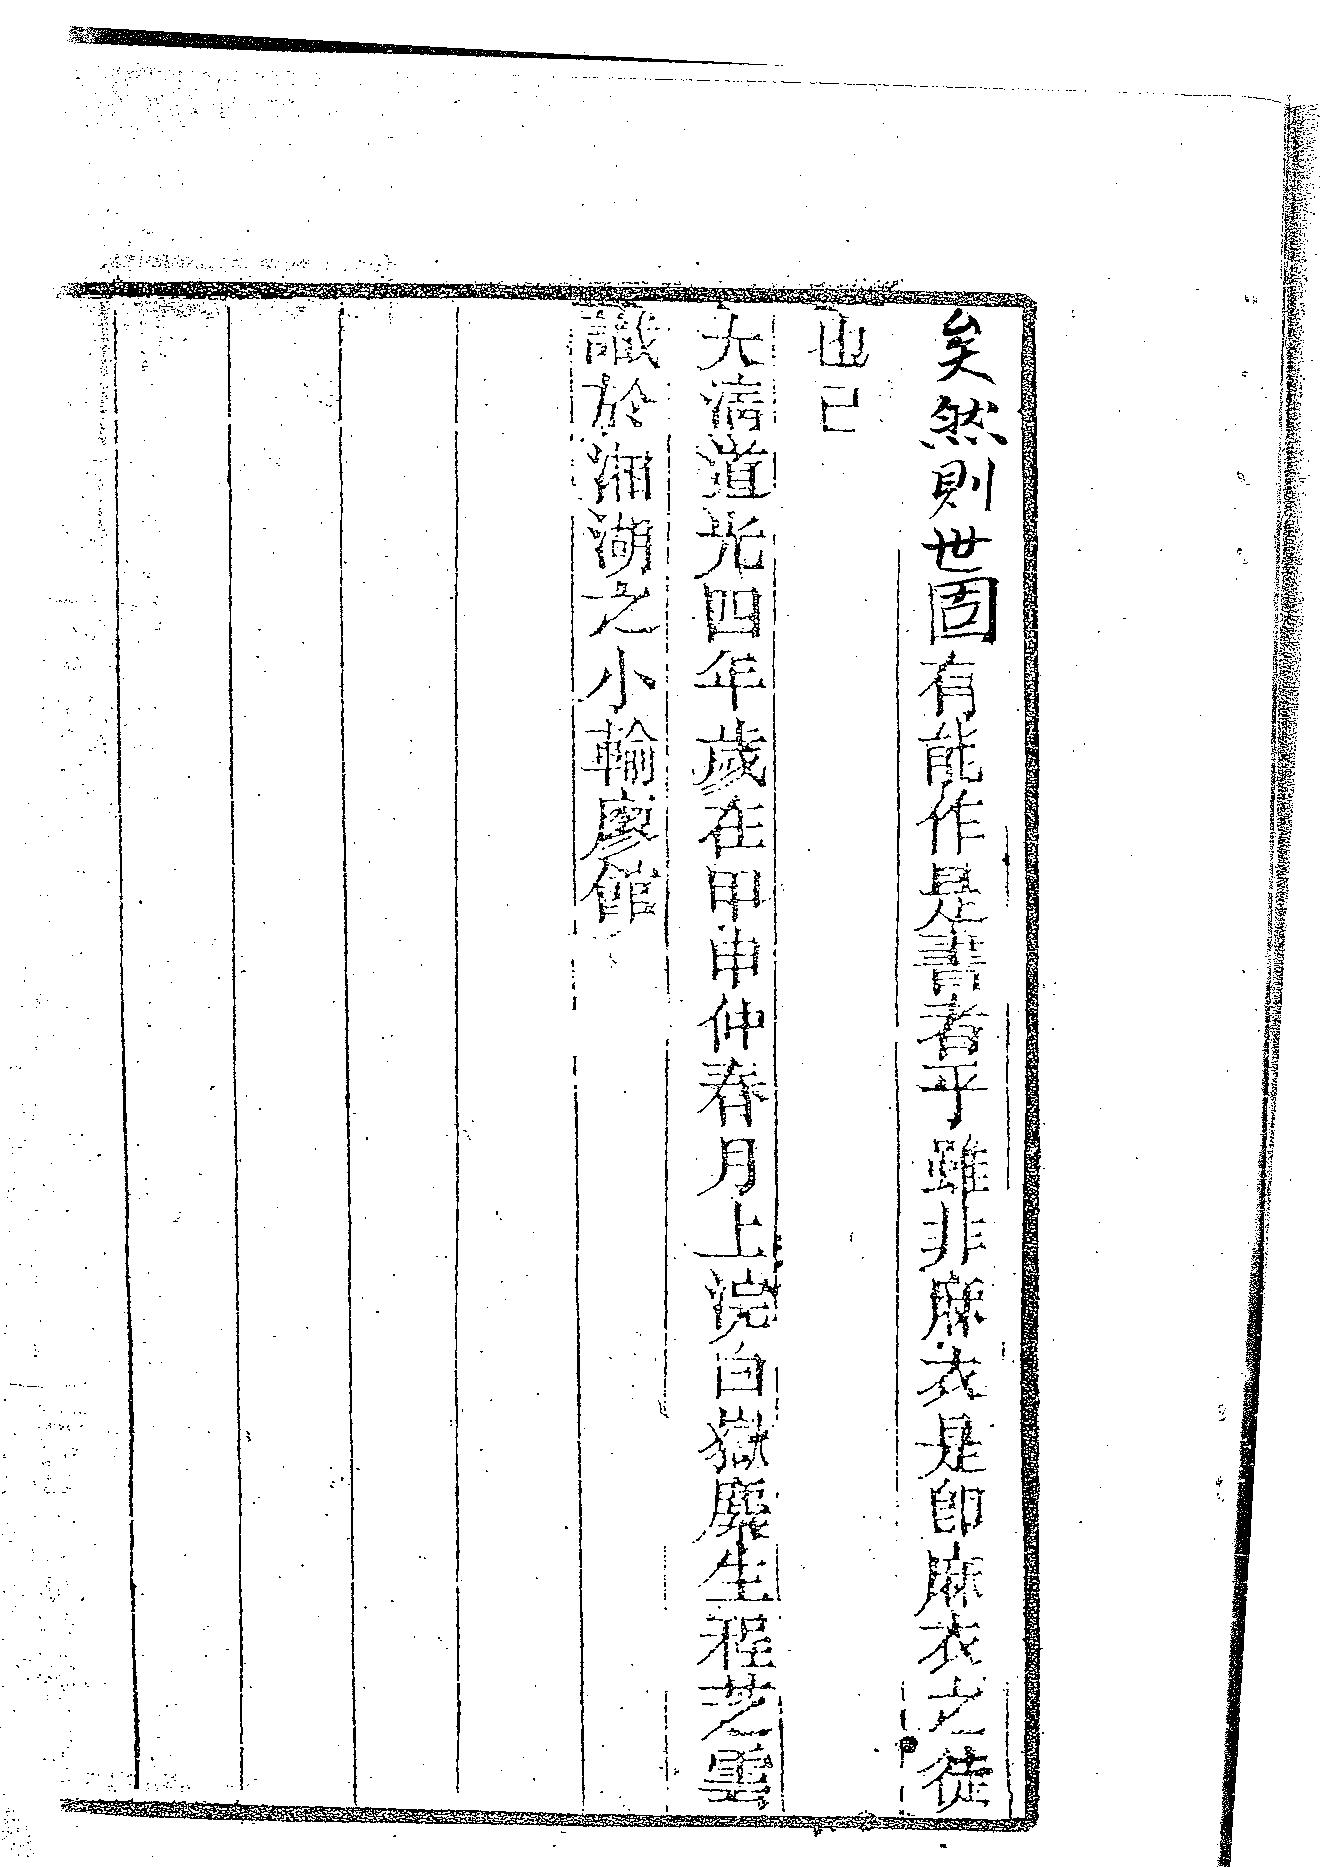 矣然則世固有能作是書者乎雖非麻衣是即麻衣之徒
也已
大清道光四年歲在甲申仲春月上浣白嶽麋生程芝雲
識於湘湖之小輪廖館